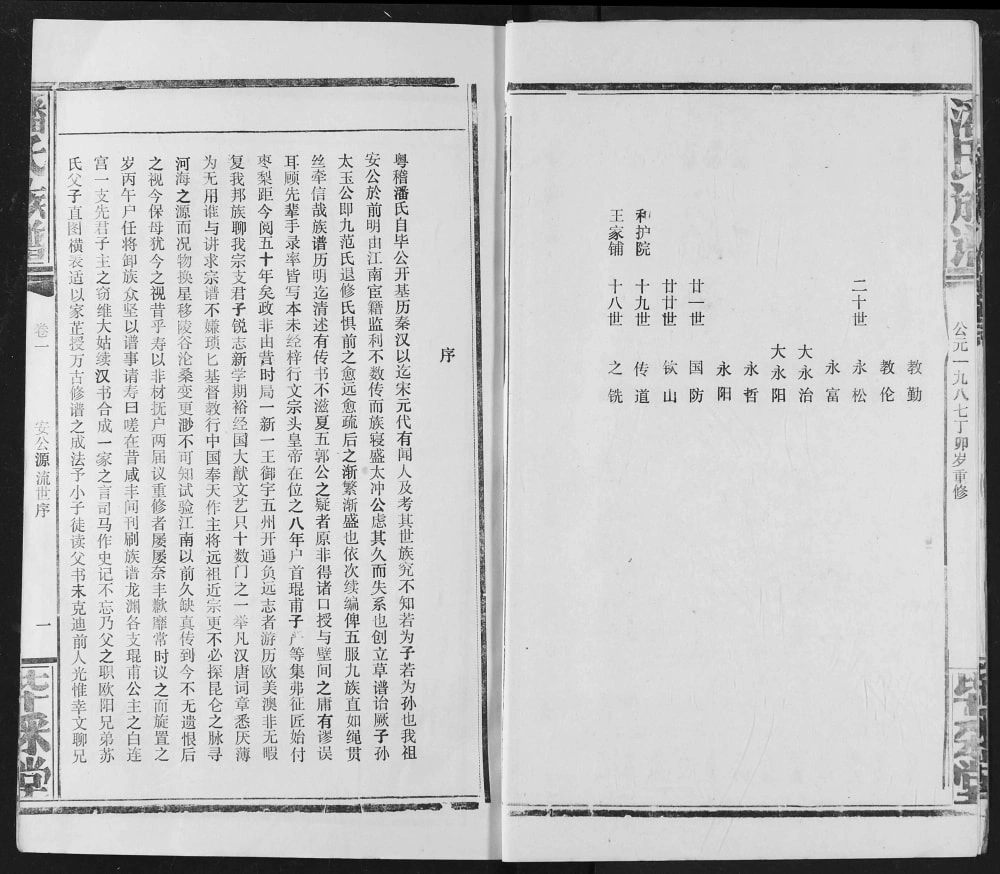 潘氏族谱
公元一九八七丁卯岁重修
毕
堂
教勤
教伦
二十世 永松
永富
大永治
大永阳
永哲
永阳
廿一世 国防
廿廿世 钦山
利护院 十九世 传道
王家铺 十八世 之铣
序
粤稽潘氏自毕公开基历秦汉以迄宋元代有闻人及考其世族究不知若为子若为孙也我祖
安公於前明由江南宦籍监利不数传而族寝盛太冲公虑其久而失系也创立草谱诒厥子孙
太玉公即九范氏退修氏惧前之愈远愈疏后之渐繁渐盛也依次续编俾五服九族直如绳贯
丝牵信哉族谱历明迄清述有传书不滋夏五郭公之疑者原非得诸口授与壁间之庸有谬误
耳顾先辈手录率皆写本未经梓行文宗头皇帝在位之八年户首琨甫子严等集弗征匠始付
枣梨距今阅五十年矣政非由昔时局一新一王御宇五州开通负远志者游历欧美澳非无暇
复我邦族聊我宗支君子锐志新学期裕经国大猷文艺只十数门之一举凡汉唐词章悉厌薄
为无用谁与讲求宗谱不嫌琐匕基督教行中国奉天作主将远祖近宗更不必探昆仑之脉寻
河海之源而况物换星移陵谷沧桑变更渺不可知试验江南以前久缺真传到今不无遗恨后
之视今保母犹今之视昔乎寿以非材抚户两届议重修者屡屡奈丰歉靡常时议之而旋置之
岁丙午户任将卸族众坚以谱事请寿曰嗟在昔咸丰间刊刷族谱龙渊各支琨甫公主之白连
宫一支先君子主之窃维大姑续汉书合成一家之言司马作史记不忘乃父之职欧阳兄弟苏
氏父子直图横表适以家芷授万古修谱之成法予小子徒读父书未克迪前人光惟幸文聊兄
潘氏族谱
卷一
安公源流世序
一
毕
堂